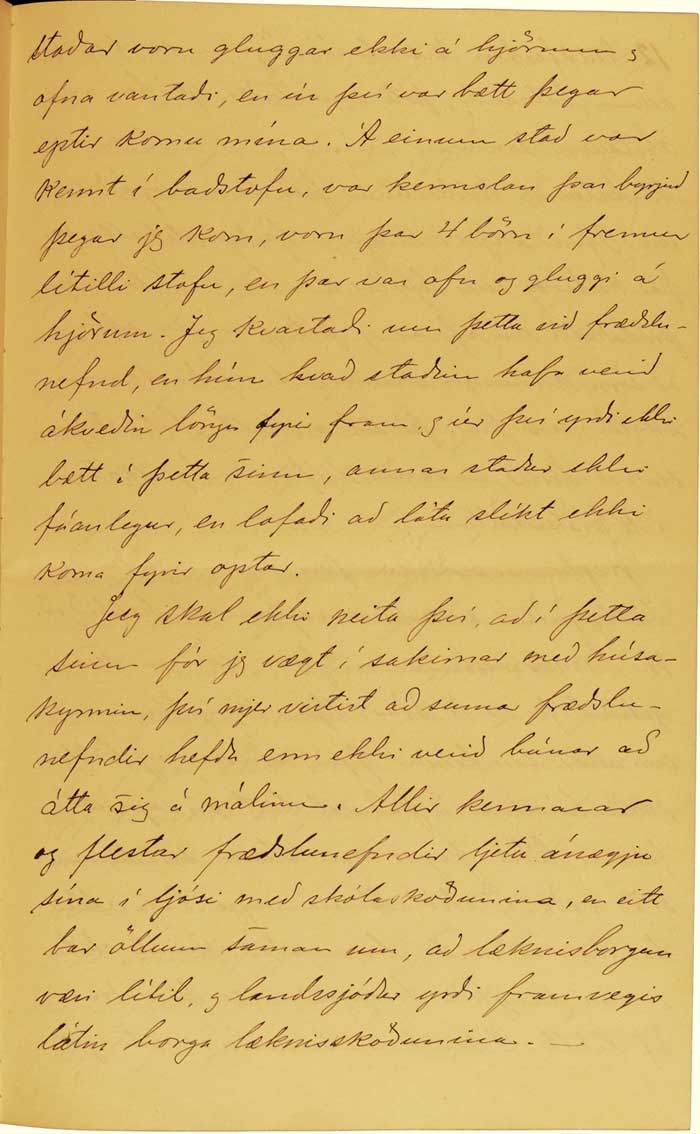 staðar voru gluggar ekki á hjörum,
ofna vantaði, en úr því var bætt þegar
eptir komu mína. Á einum stað var
kennt í baðstofu, var kennslan þar byrjuð
þegar jeg kom, voru þar 4 börn í fremur
lítilli stofu, en þar var ofn og gluggi á
hjörum. Jeg kvartaði um þetta við fræðslu-
nefnd, en hún kvað staðinn hafa verið
ákveðin löngu fyrir fram, og úr því yrði ekki
bætt í þetta sinn, annar staður ekki
fáanlegur, en lofaði að láta slíkt ekki
koma fyrir optar.
Jeg skal ekki neita því, að í þetta
sinn fór jeg vægt í sakirnar með húsa-
kynnin, því mjer virtist að sumar fræðslu-
nefndir hefðu enn ekki verið búnar að
átta sig á málinu. Allir kennarar
og flestar fræðslunefndir ljetu ánægju
sína í ljósi með skólaskoðunina, en eitt
bar öllum saman um, að læknisborgun
væri lítil, og landssjóður yrði framvegis
látin borga læknisskoðunina. —